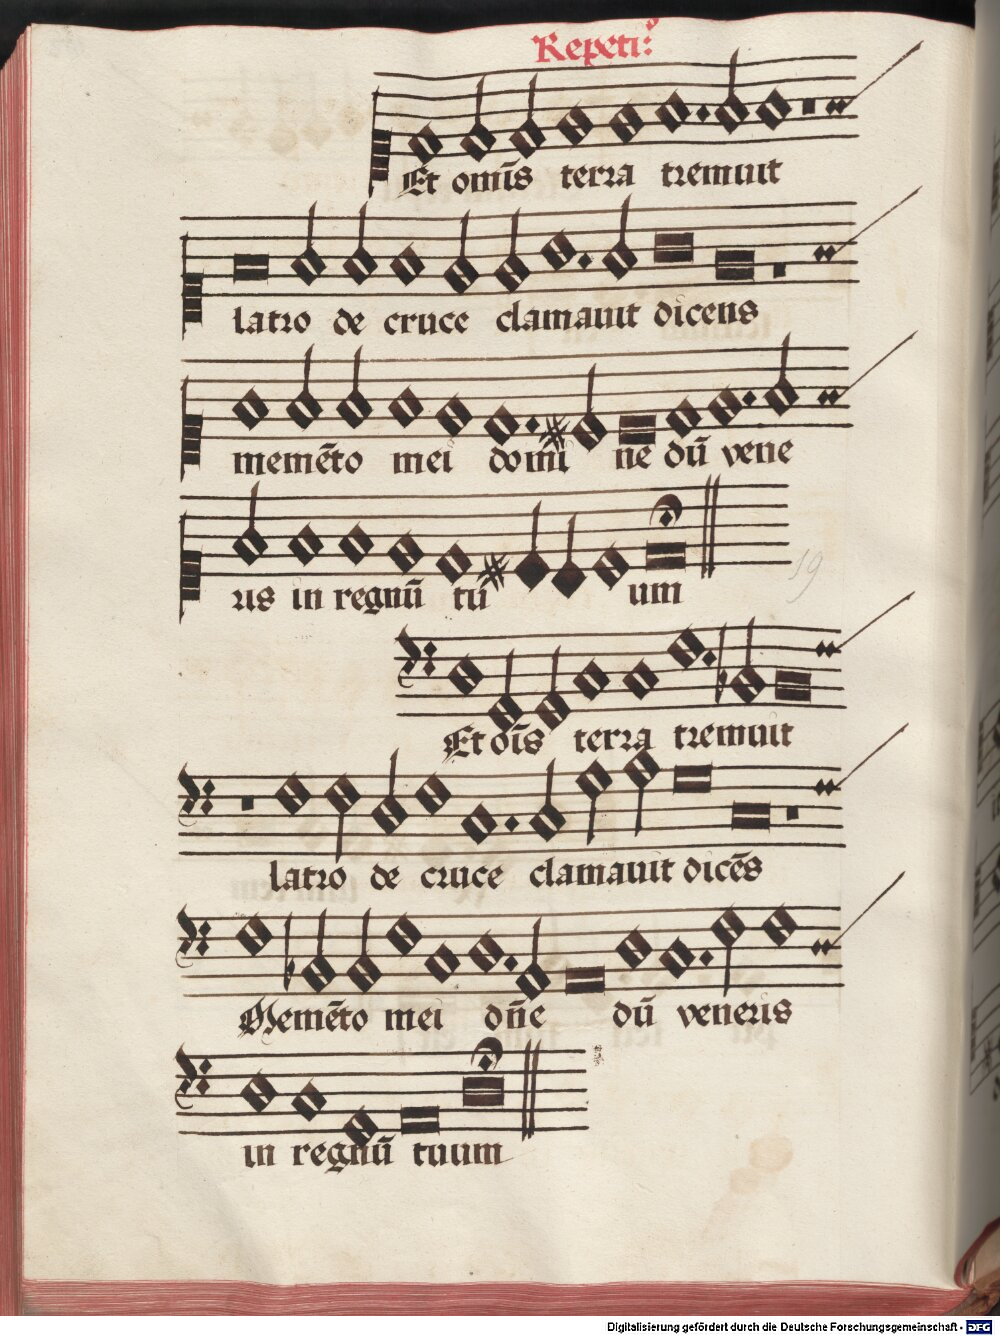 Repeti:o
Et om̄s terra tremuit
latro de cruce clamauit dicens
memēto mei domi ne dū vene
ris in regnū tu um
19
Et oīs terra tremuit
latro de cruce clamauit dicēs
Memēto mei dn̄e dū veneris
in regnū tuum
Digitalisierung gefördert durch die Deutsche Forschungsgemeinschaft - DFG